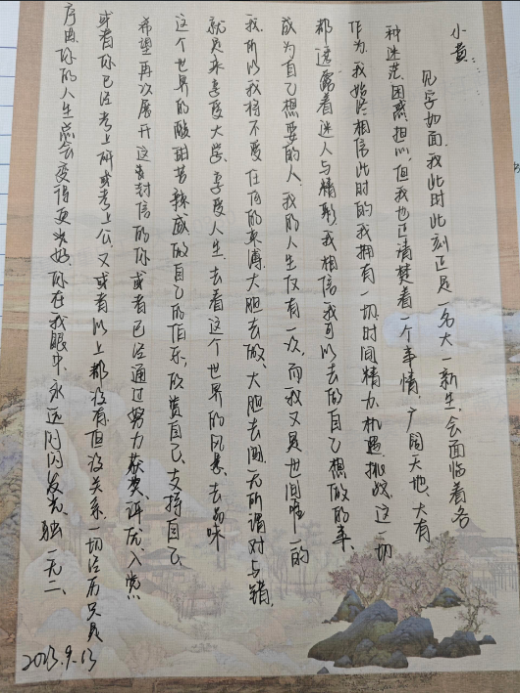 小黄:
见字如面,我此时此刻还是一名大一新生,会面临着各
种迷茫困惑担心,但我也还清楚着一个事情,广阔天地、大有
作为,我始终相信此时的我拥有一切时间精力、机遇挑战,这一切
都透露着迷人与精彩,我相信我可以去做自己想做的事,
成为自己想要的人,我的人生仅有一次,而我又是世间唯一的
我,所以我将不受任何的束缚,大胆去做、大胆去闯,无所谓对与错,
就是来享受大学、享受人生,去看这个世界的风景,去品味
这个世界的酸甜苦辣咸,做自己的伯乐,欣赏自己、支持自己
希望再次展开这封信的你或者已经通过努力获奖、评优、入党
或者你已经考上研或考上公,又或者以上都没有,但没关系,一切经历只是
序章,你的人生总会变得更美好,你在我眼中,永远闪闪发光,独一无二、
2023.9.13